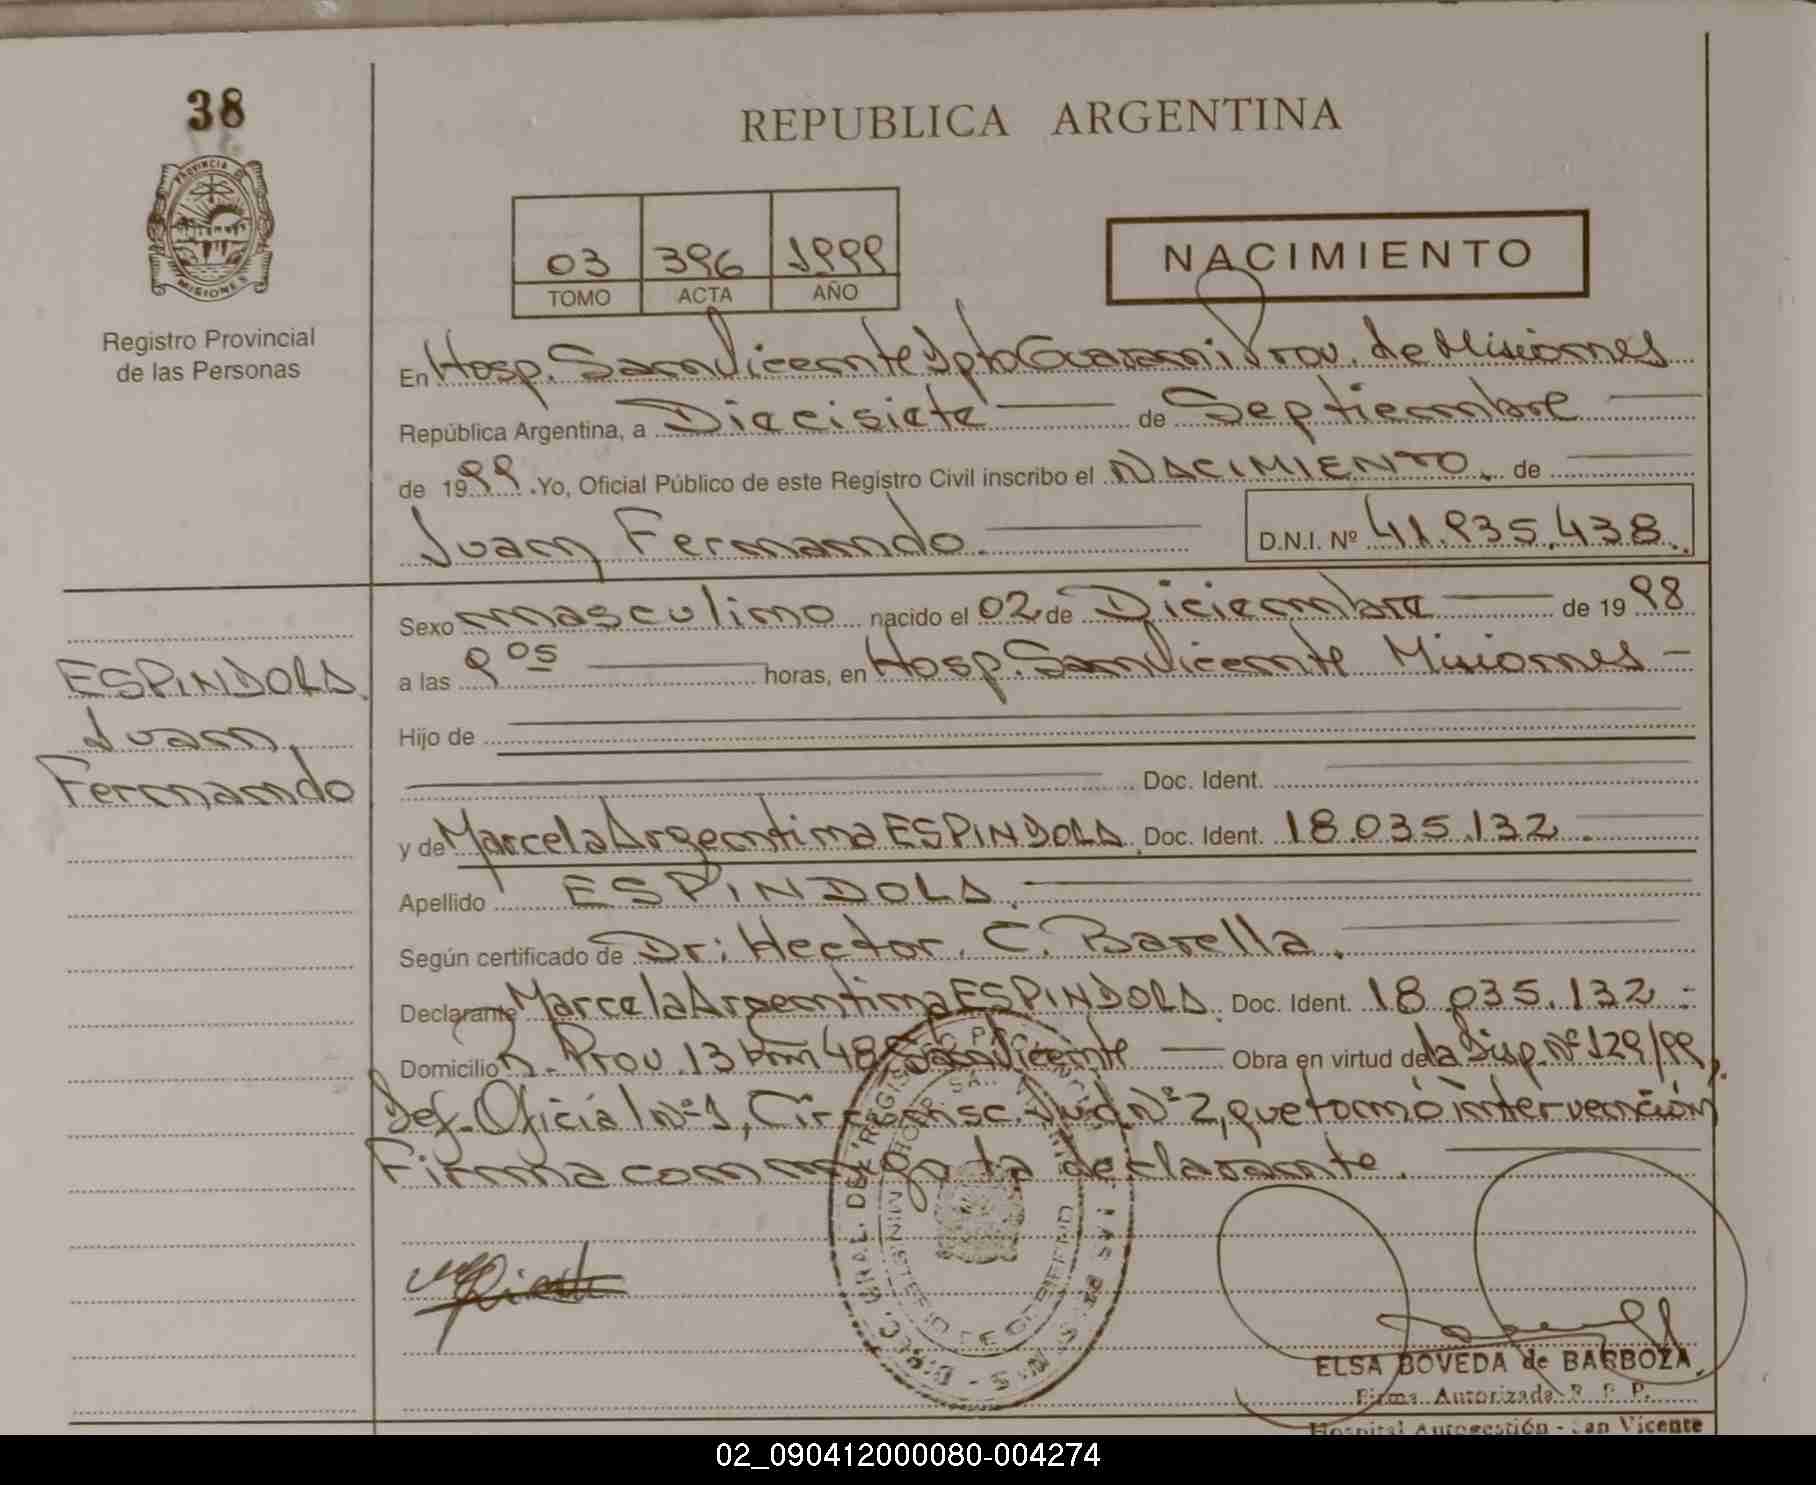 38
REPUBLICA ARGENTINA
PROVINCIA DE
MISIONES
03 396 1999
TOMO ACTA AÑO
NACIMIENTO
Registro Provincial
de las Personas
En Hosp. San Vicente Dpto Guarani Prov. de Misiones
República Argentina, a Diecisiete de Septiembre
de 1999. Yo, Oficial Público de este Registro Civil inscribo el NACIMIENTO. de
Juan Fernando. D.N.I. Nº 41.935.438.
Sexo masculino nacido el 02 de Diciembre de 1998
a las 9 05 horas, en Hosp. San Vicente Misiones
ESPINDOLA
Juan
Fernando
Hijo de
Doc. Ident.
y de Marcela Argentina ESPINDOLA. Doc. Ident. 18.035.132.
Apellido ESPINDOLA.
Según certificado de Dr: Hector. C. Barella.
Declarante Marcela Argentina ESPINDOLA. Doc. Ident. 18.035.132.
Domicilio R. Prov. 13 Km 48 San Vicente Obra en virtud de la Disp. Nº 129/99,
Def. Oficial Nº 1, Circunsc. Jud. Nº 2, que tomó intervención
Firma conmigo la declarante.
MINISTERIO DE GOBIERNO
ELSA BOVEDA de BARBOZA
Firma Autorizada R. P. P.
Hospital Autogestión - San Vicente
02_090412000080-004274